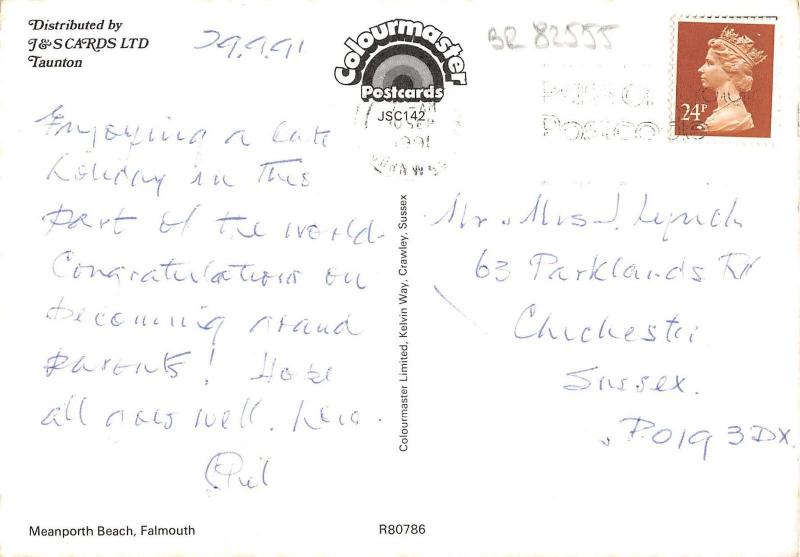 Distributed by
J&S CARDS LTD
Taunton
29.9.91
Colourmaster
Postcards
JSC142
BR 82555
24P
Enjoying a late
holiday in this
part of the world.
Congratulations on
becoming grand
parents! Hope
all goes well.
Phil
Mr. Mrs J. Lynch
63 Parklands Rd
Chichester
Sussex.
PO19 3DX.
Colourmaster Limited, Kelvin Way, Crawley, Sussex
Meanporth Beach, Falmouth
R80786